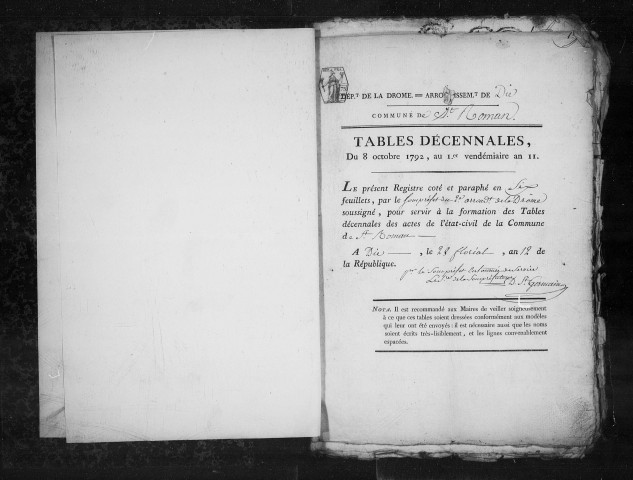 DÉP.T DE LA DROME. = ARRONDISSEM.T DE Die
COMMUNE DE St. Roman.
TABLES DÉCENNALES,
Du 8 octobre 1792, au 1.er vendémiaire an 11.
LE présent Registre coté et paraphé en Six
feuillets, par le Souspréfet du 2e arrondt de la Drôme
soussigné, pour servir à la formation des Tables
décennales des actes de l'état-civil de la Commune
de St Roman
A Die, le 28 floréal, an 12 de
la République.
pr. le Souspréfet
D. St Germain
NOTA. Il est recommandé aux Maires de veiller soigneusement
à ce que ces tables soient dressées conformément aux modèles
qui leur ont été envoyés : il est nécessaire aussi que les noms
soient écrits très-lisiblement, et les lignes convenablement
espacées.